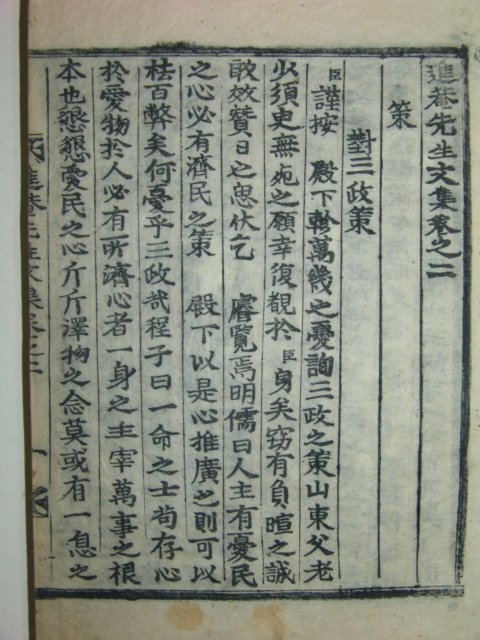 進菴先生文集卷之二
策
對三政策
臣謹按 殿下軫萬幾之憂詢三政之策山東父老
少須臾無死之願幸復覩於臣身矣窃有負暄之誠
敢效贊日之忠伏乞 睿覽焉明儒曰人主有憂民
之心必有濟民之策 殿下以是心推廣之則可以
祛百弊矣何憂乎三政哉程子曰一命之士苟存心
於愛物於人必有所濟心者一身之主宰萬事之根
本也懇懇愛民之心斤斤澤物之念莫或有一息之
進菴先生文集卷之二
一